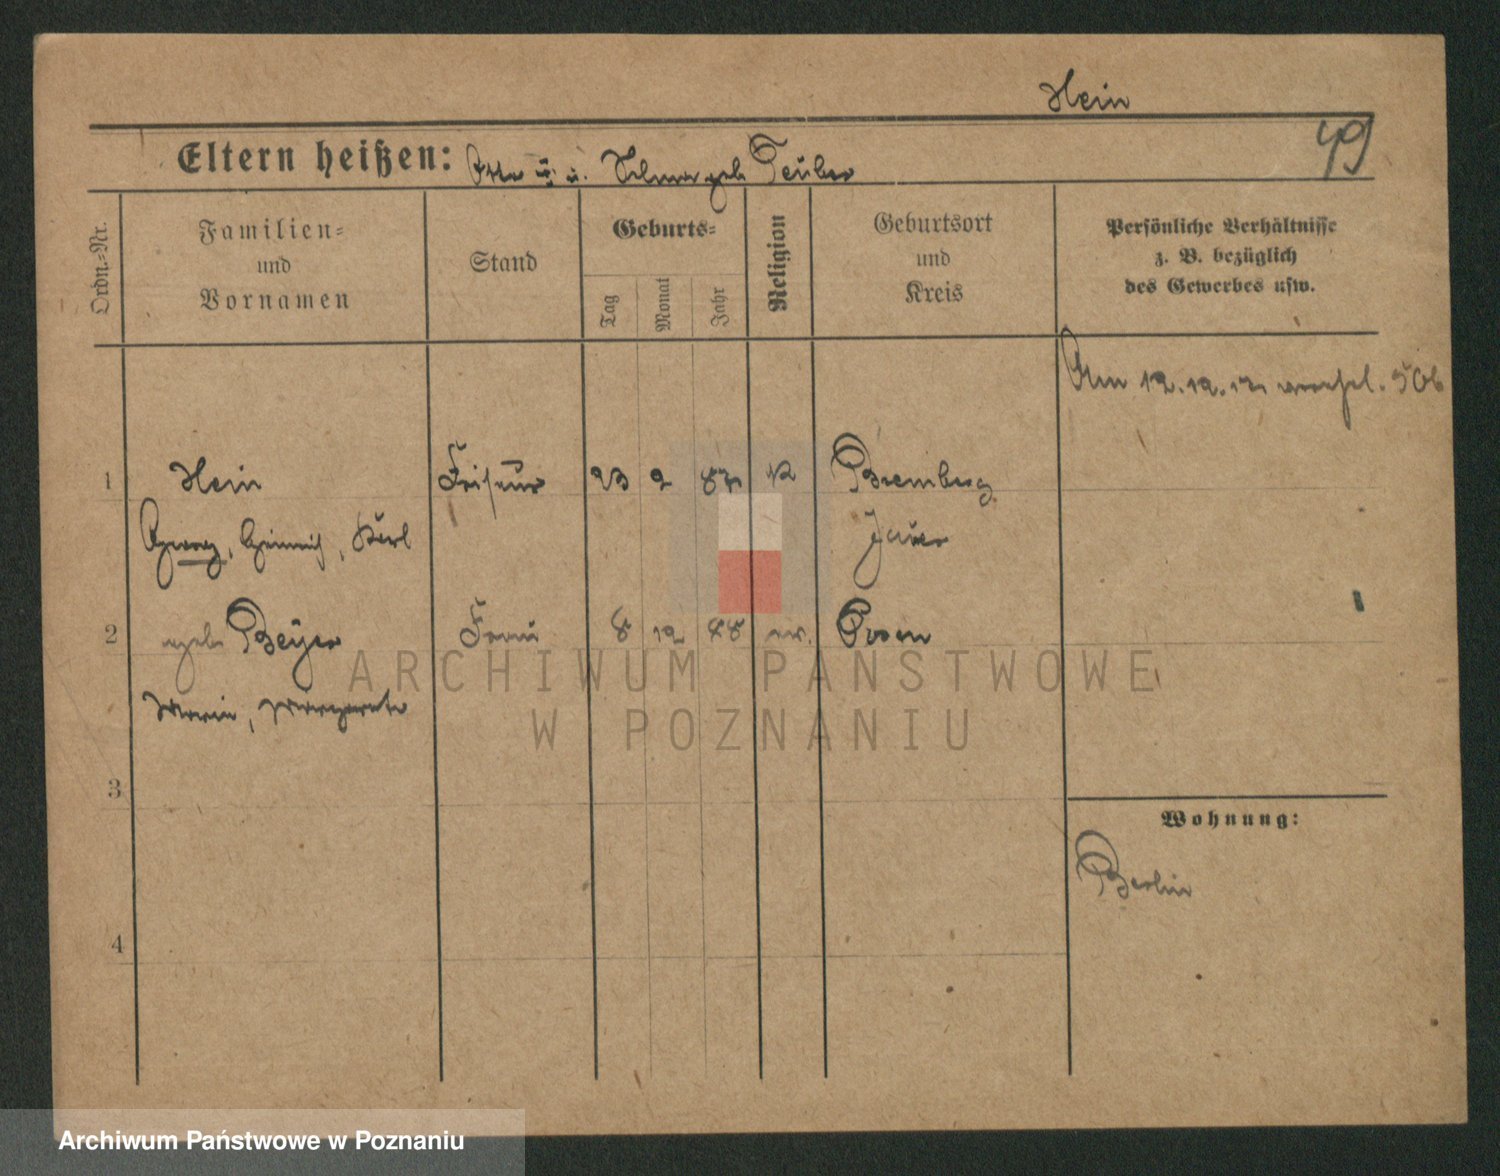 Hein
49
Eltern heißen: Otto u. geb. Teuber
Ordn.-Nr.
Familien-
und
Vornamen
Stand
Geburts-
Tag
Monat
Jahr
Religion
Geburtsort
und
Kreis
Persönliche Verhältnisse
z. B. bezüglich
des Gewerbes usw.
Am 12.12.
1 Hein Friseur 23 2 87 K Bremberg
Georg, Heinrich, Karl Jauer
2 geb. Beyer Frau 8 12 88 ev. Posen
Maria, Margarete
3
4
Wohnung:
Berlin
ARCHIWUM PAŃSTWOWE
W POZNANIU
Archiwum Państwowe w Poznaniu